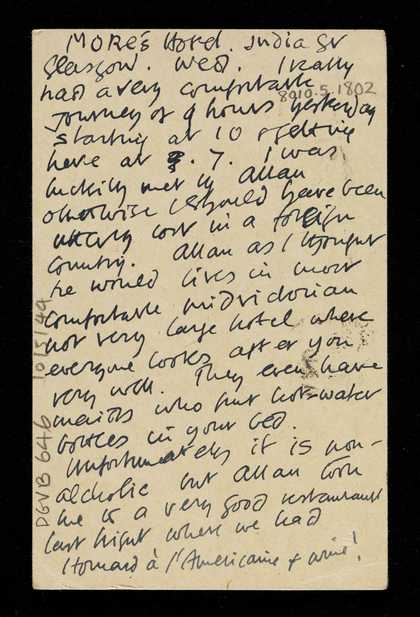 MORE's Hotel. India St
Glasgow. Wed. I really
had a very comfortable
8010.5.1802
journey of 9 hours yesterday
starting at 10 & getting
here at 7. I was
luckily met by Allan
otherwise I should have been
utterly lost in a foreign
country. Allan as I thought
he would lives in most
comfortable midvictorian
not very large hotel where
everyone looks after you
very well. They even have
maids who put hot-water
bottles in your bed.
Unfortunately it is non-
alcholic but Allan took
me to a very good restaurant
last night where we had
Homard à l'Americaine & wine!
DGVB 646 10/5/49